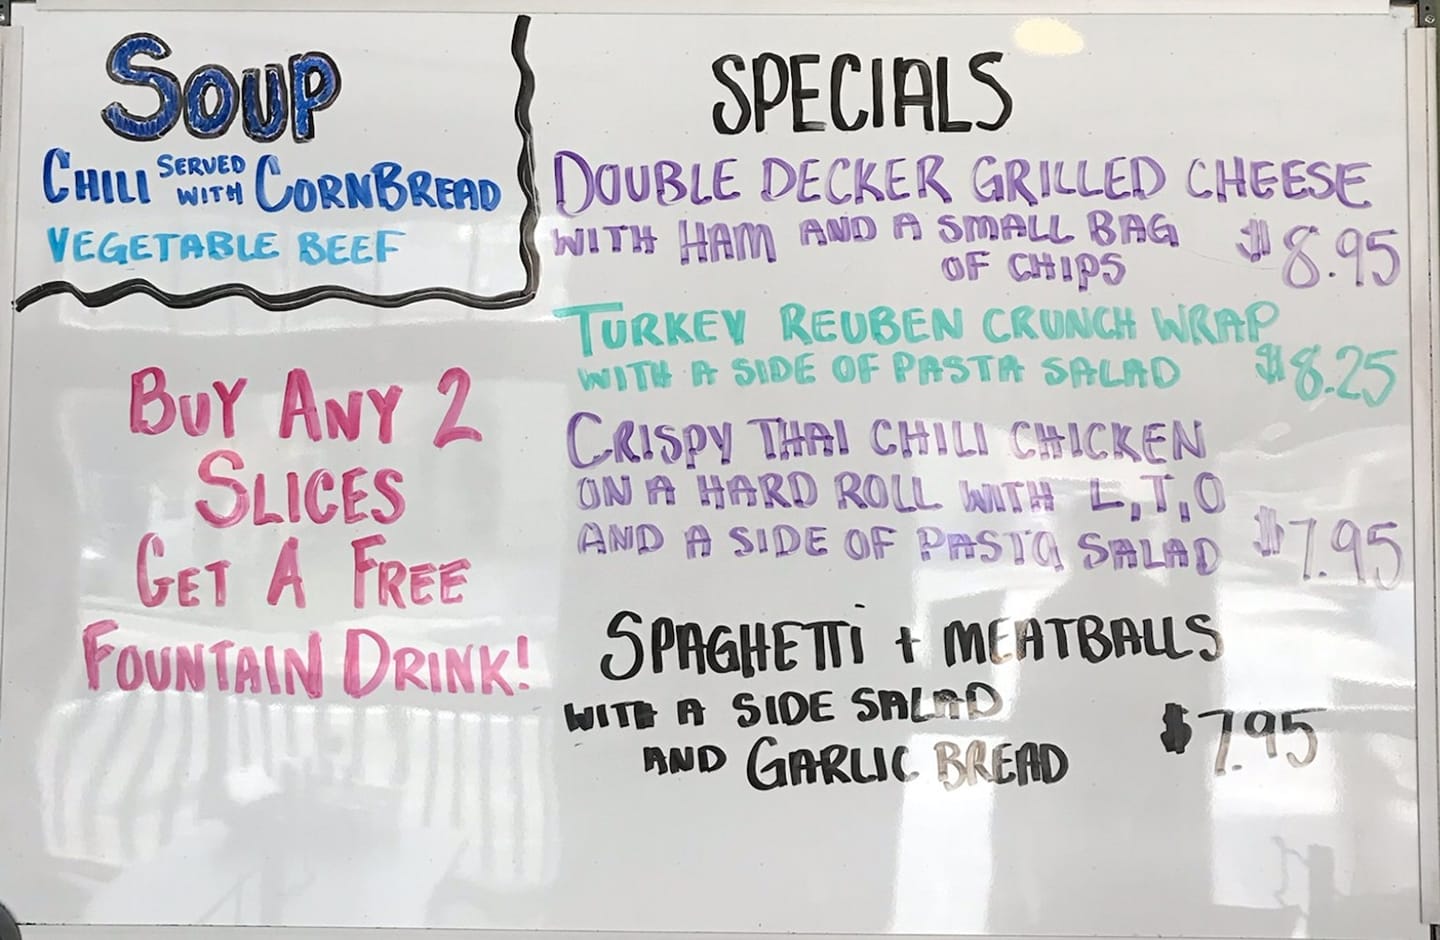 SOUP
CHILI SERVED WITH CORNBREAD
VEGETABLE BEEF
BUY ANY 2
SLICES
GET A FREE
FOUNTAIN DRINK!
SPECIALS
DOUBLE DECKER GRILLED CHEESE
WITH HAM AND A SMALL BAG
OF CHIPS $8.95
TURKEY REUBEN CRUNCH WRAP
WITH A SIDE OF PASTA SALAD $8.25
CRISPY THAI CHILI CHICKEN
ON A HARD ROLL WITH L,T,O
AND A SIDE OF PASTA SALAD $7.95
SPAGHETTi + MEATBALLS
WITH A SIDE SALAD
AND GARLIC BREAD $7.95